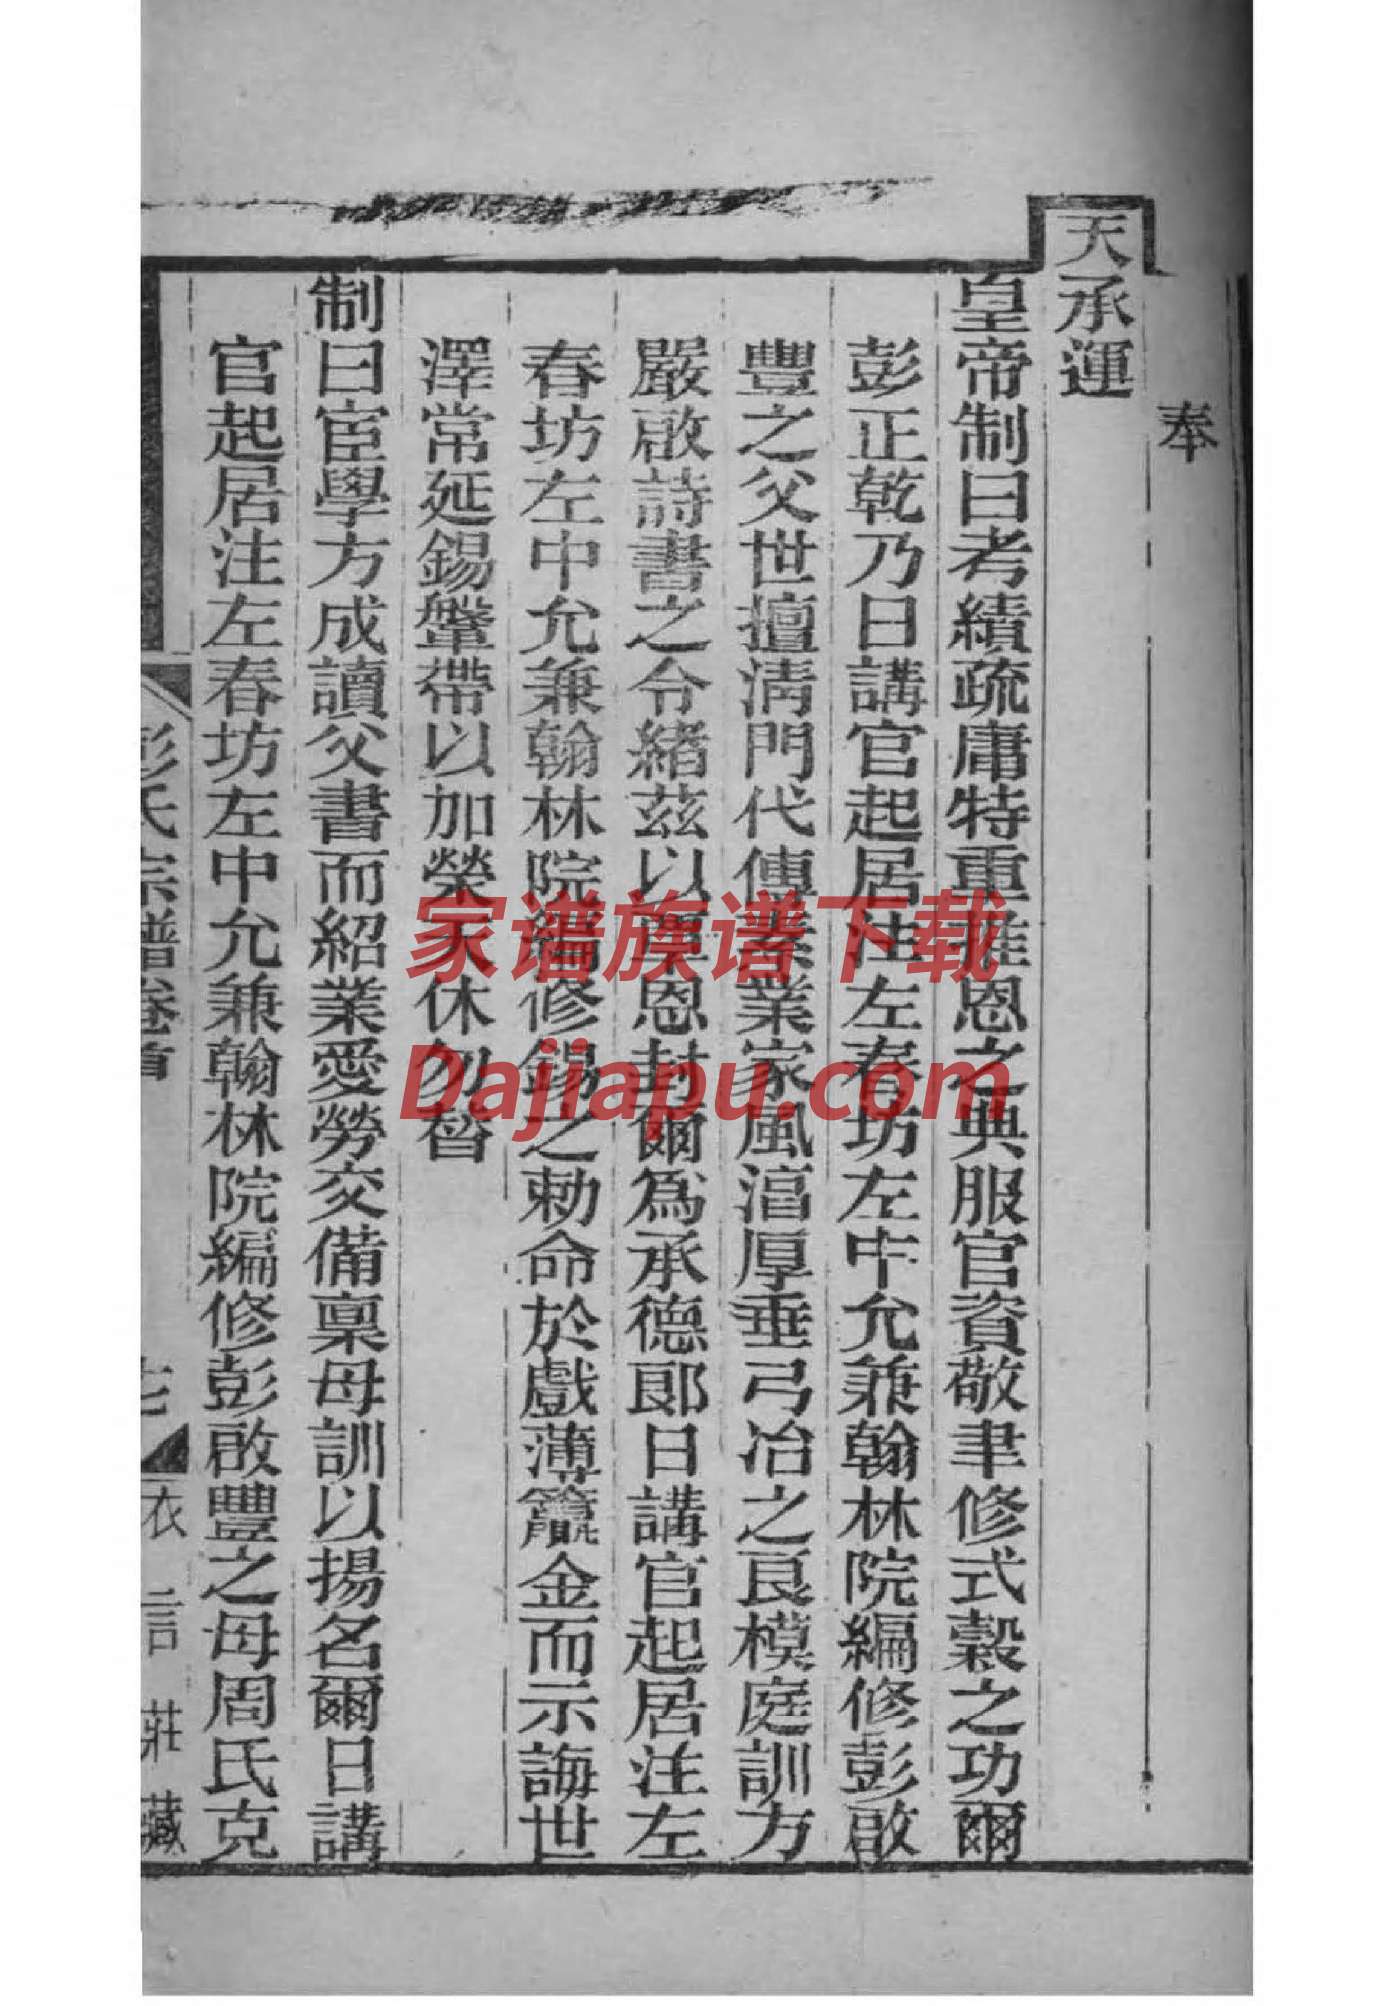 奉
天承運
皇帝制曰考績疏庸特重推恩之典服官資敬聿修式穀之功爾
彭正乾乃日講官起居注左春坊左中允兼翰林院編修彭啟
豐之父世擅淸門代傳素業家風湻厚垂弓冶之良模庭訓方
嚴啟詩書之令緒茲以覃恩封爾爲承德郎日講官起居注左
春坊左中允兼翰林院編修錫之勅命於戲薄籯金而示誨世
澤常延錫鞶帶以加榮天休勿替
制曰宦學方成讀父書而紹業愛勞交備稟母訓以揚名爾日講
官起居注左春坊左中允兼翰林院編修彭啟豐之母周氏克
彭氏宗譜卷首
七
衣言莊藏
家谱族谱下载
Dajiapu.com